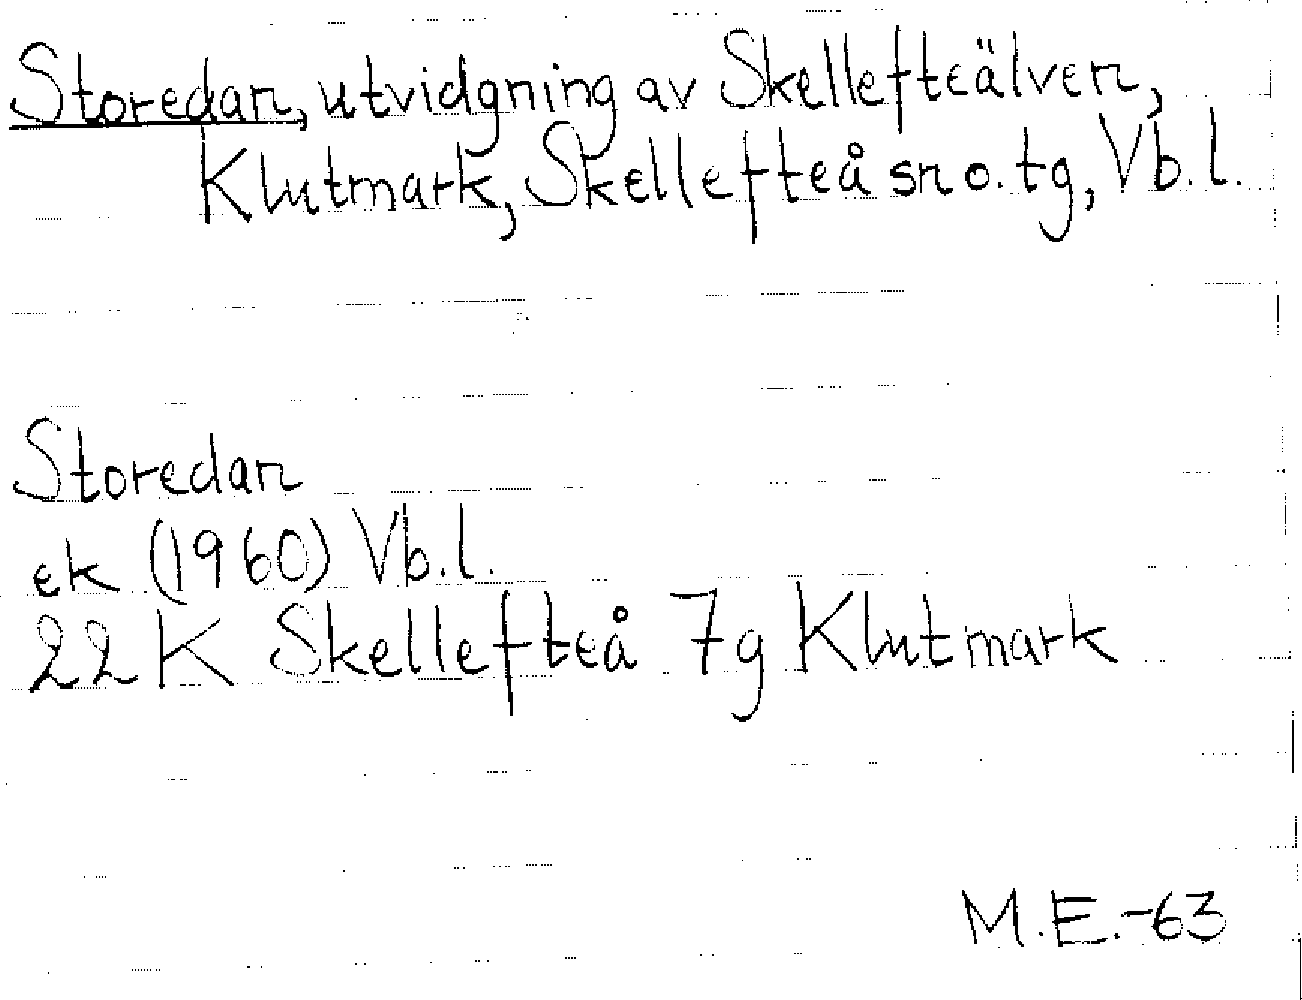 Storedan, utvidgning av Skellefteälven,
Klutmark, Skellefteå sn o. tg, Vb.l.
Storedan
ek (1960) Vb.l.
22 K Skellefteå 7g Klutmark
M.E.-63